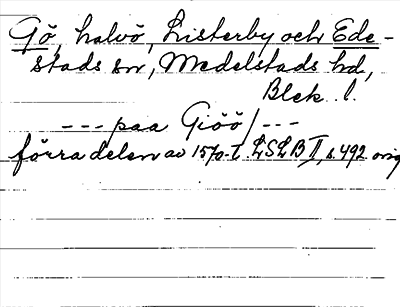 Gö, halvö, Listerby och Ede-
stads sn, Medelstads hd,
Blek. l.
--- paa Giöö/---
förra delen av 1570-t. LSLB II, s. 492 orig